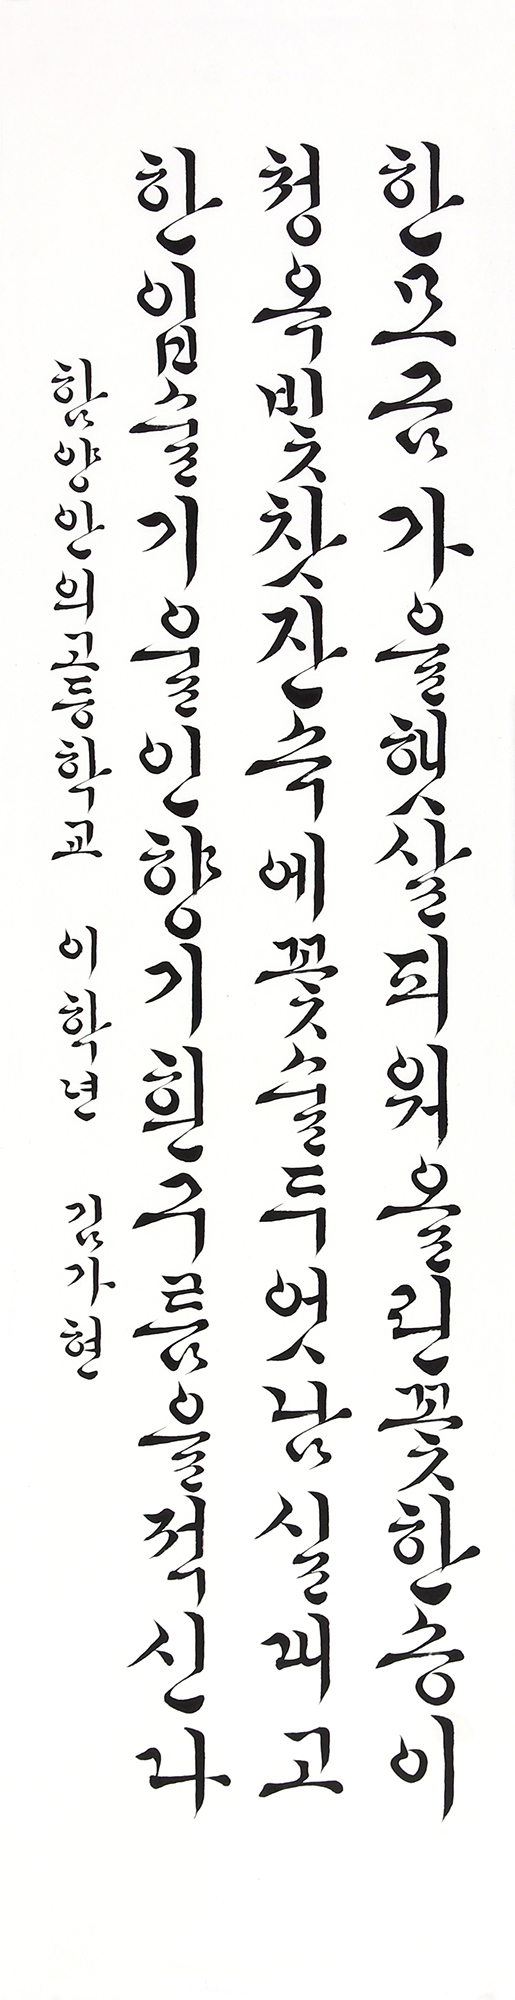 한모금가을햇살피워올린꽃한송이
청옥빛찻잔속에꽃술두엇남실대고
한입술기울인향기흰구름을적신다
함양안의고등학교 이학년 김가현